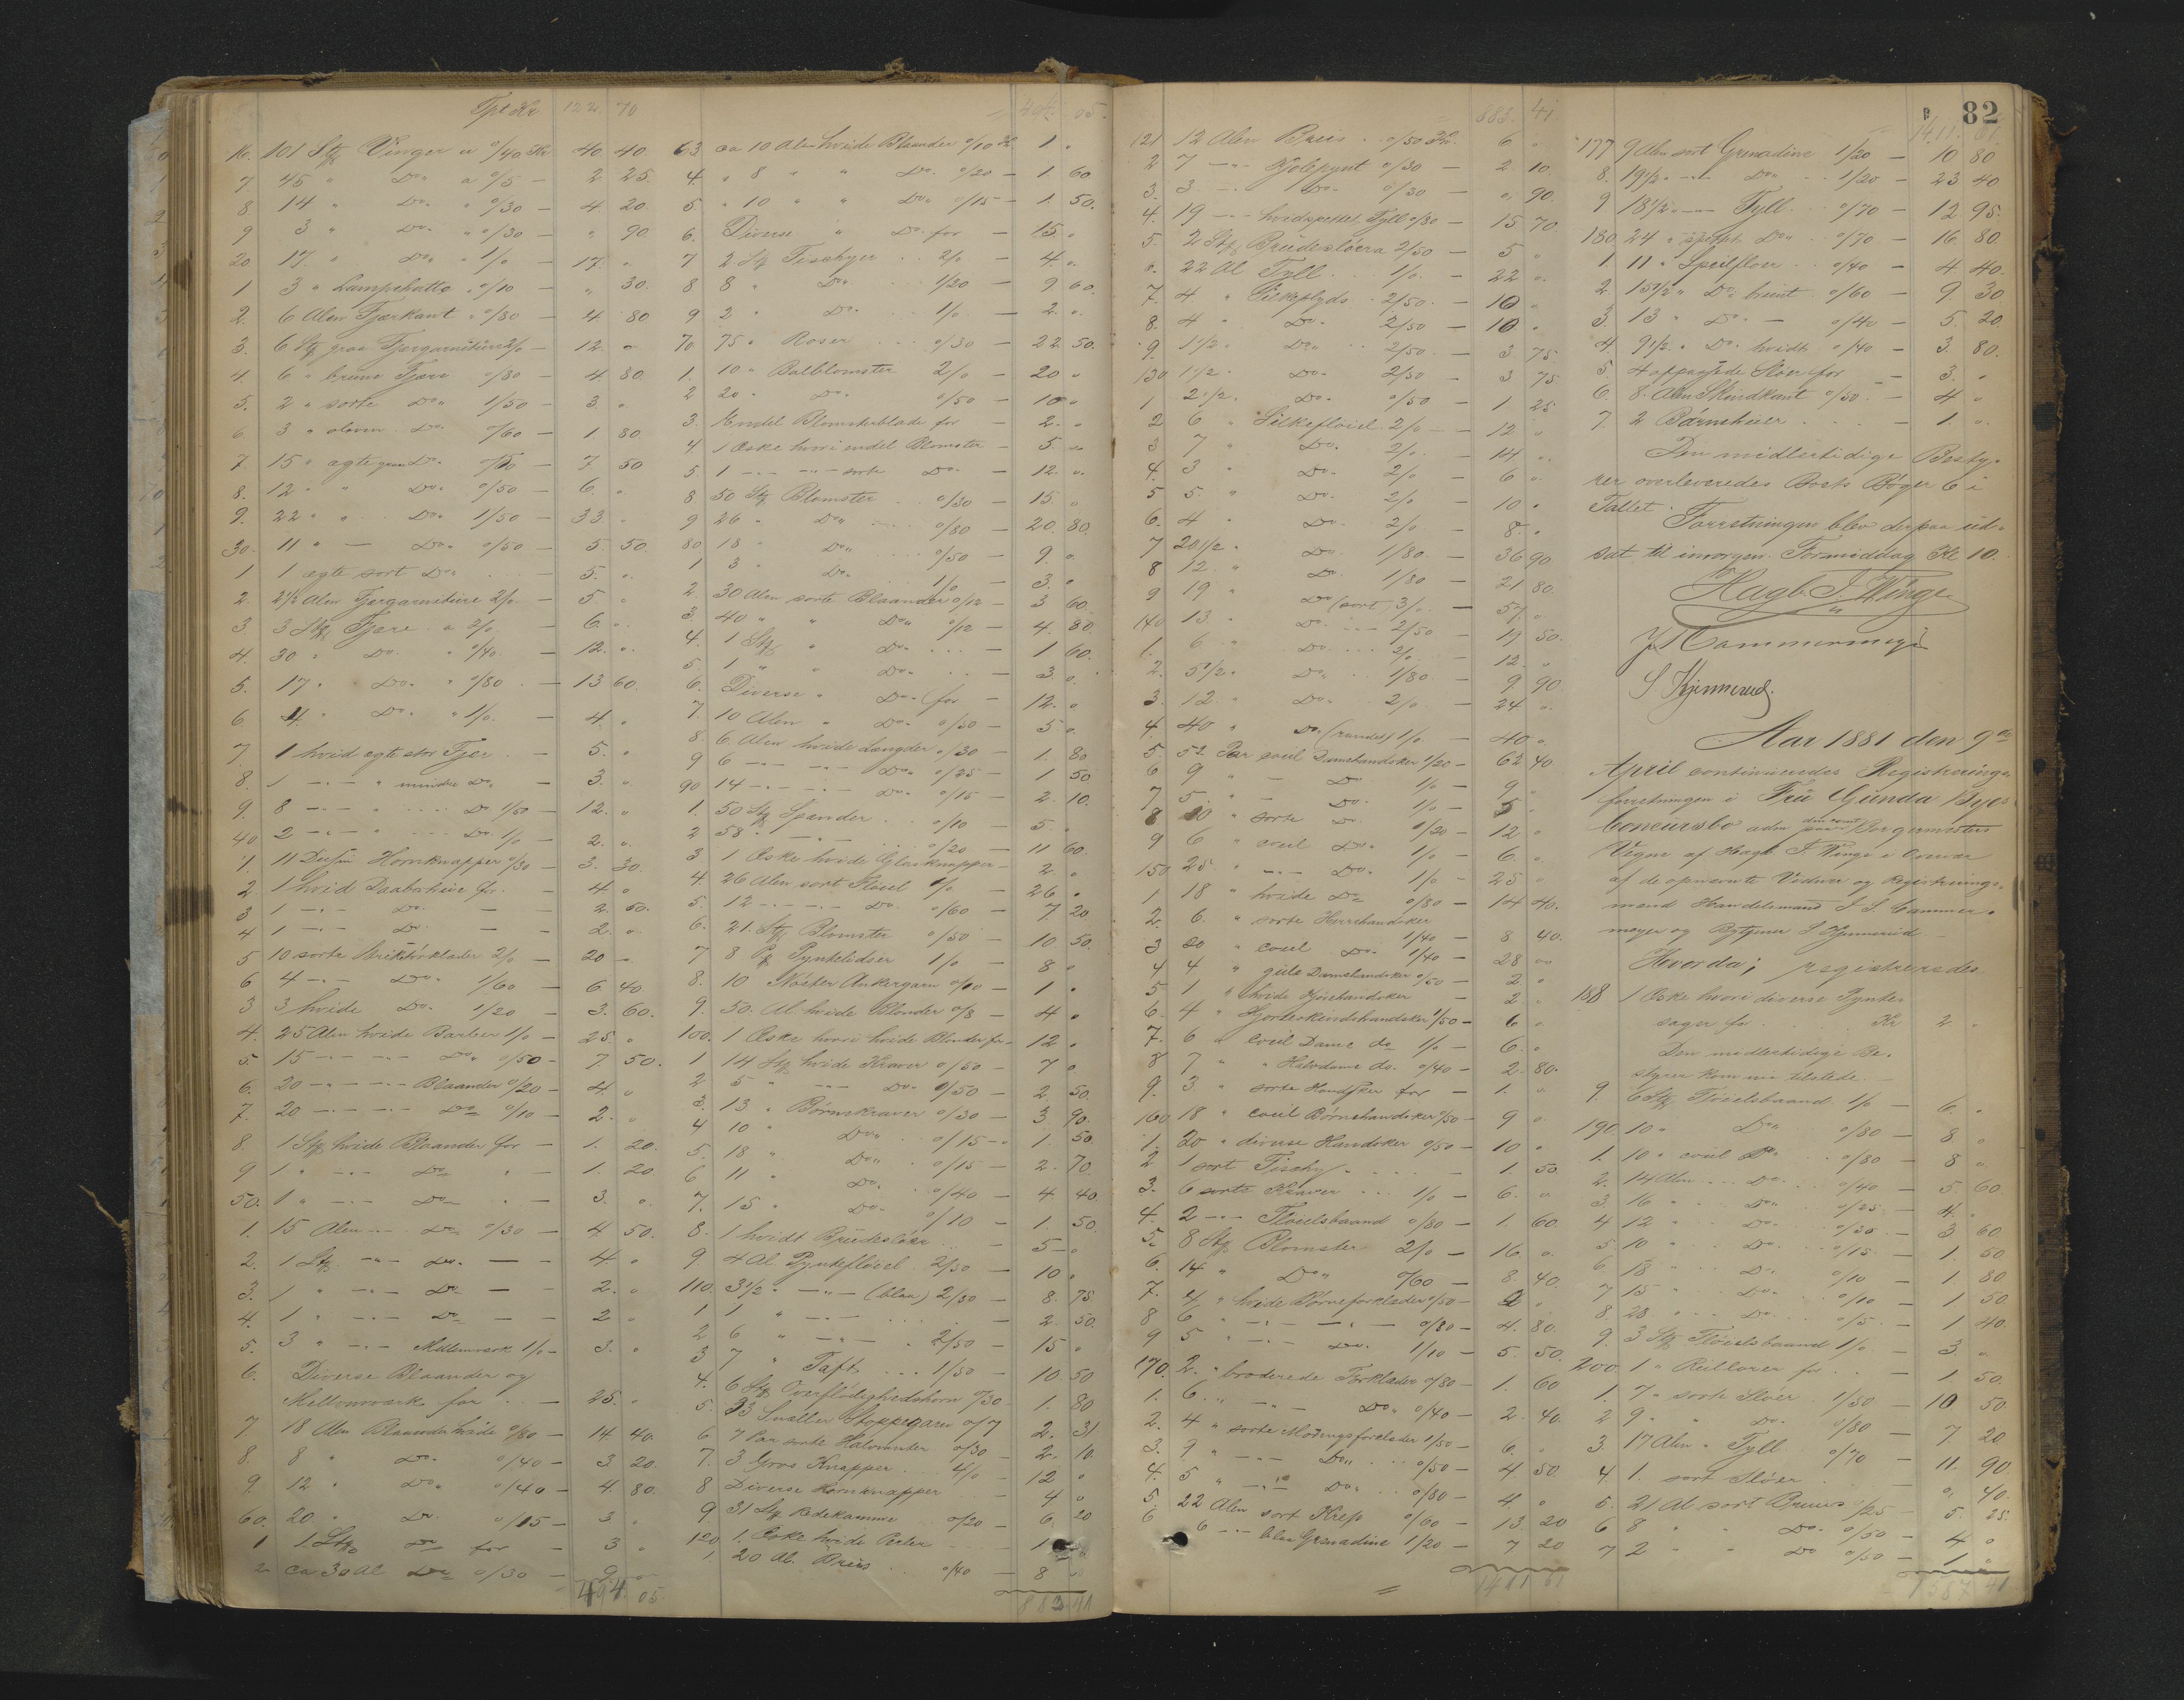 Tpt Kr 122 70
16. 101 Stk Vinger a 0/40 Kr 40 40.
7. 45 " Do " a 0/5 - 2 25.
8. 14 " Do " 0/30 - 4 20.
9 3 " Do " 0/30 - " 90
20 17 " Do " 1/0 - 17 "
1 3 " Lampehatte " 0/10 - " 30.
2. 6 Alen Fjærkant " 0/80 - 4 80
3. 6 Stk graa Fjærgarniture 2/0 - 12. "
4. 6 " brune Fjære 0/80 - 4 80.
5. 2 " sorte Do " 1/50 - 3. "
6. 3 " oliven Do. 0/60 - 1. 80
7. 15 " ægte grøn Do. 0/50 - 7 50
8. 12 " " Do. 0/50 - 6. "
9. 22 " " Do. 1/50 - 33. "
30. 11 " - Do. 0/50 - 5. 50.
1 1 ægte sort Do. - 5. "
2. 2 1/2 Alen Fjærgarniture 2/0 - 5. "
3. 3 Stk Fjære a 2/0 - 6. "
4. 30 " Do. " 0/40 - 12. "
5. 17 " Do. " 0/80 - 13 60.
6 4 " Do. " 1/0 - 4 "
7. 1 hvid ægte stor Fjær - 5. "
8. 1 -"- " mindre Do - 3. "
9. 8 -"- " Do 1/50 - 12. "
40 2 -"- " Do. 1/0 - 2. "
1. 11 Dusin Hornknapper 0/30 - 3. 30.
2. 1 hvid Daabshue for - 4 "
3 1 -"- Do. - - 2. 50.
4 1 -"- Do. - - 2. "
5 10 sorte Strikforklæder 2/0 - 20 -
6 4 -"- Do. 1/60 - 6 40
3 3 hvide Do. 1/20 - 3. 60.
4. 25 Alen hvide Barber 1/0 - 25. "
5. 15 -"- -"- Do. 0/50 - 7. 50.
6. 20 -"- -"- Blaander 0/20 - 4 "
7. 20 -"- -"- Do 0/10 - 2. "
8. 1 Stk hvide Blaander for - 1. 20.
9 1. " -"- Do " - 1. 20
50. 1 " -"- Do " - 3. "
1. 15 Alen -"- Do 0/30 - 4 50.
2. 1 Stk -"- Do. - - 4 "
3. 1 " -"- Do - - 2. "
4. 1 " -"- Do - - 2 "
5. 3 " -"- Mellemværk 1/0 - 3. "
6. Diverse Blaander og
Mellemværk for - 25. "
7. 18 Alen Blaander hvide 0/80 - 14 40.
8. 8 " Do. 0/40 - 3 20.
9. 12 " Do. 0/40 - 4. 80.
60. 20. " Do. 0/15 - 3 "
1 1 Stk Do for - 3 "
2 ca 30 Al Do 0/30 - 9 "
494. 05
494 05.
63 ca 10 Alen hvide Blaander 0/10 Kr 1 "
4. " 8 " " Do. 0/20 - 1. 60
5. " 10 " " Do. 0/15 - 1. 50.
6. Diverse " Do. for - 15 "
7 2 Stk Fischyer 2/0 - 4 "
8 8 " Do. 1/20 - 9 60.
9 2 " Do. 1/0 - 2. "
70. 75 " Roser 0/30 - 22. 50.
1. 10 " Balblomster 2/0 - 20 "
2 20 " Do. 0/50 - 10 "
3. Endel Blomsterblade for - 2. "
4 1 Æske hvori endel Blomster - 5. "
5 1 -"- -"- sorte Do. - 12. "
8. 50 Stk Blomster 0/30 - 15. "
9 26 " Do. 0/80 - 20. 80
80 18 " Do. 0/50 - 9. "
1 3 " Do. 1/0 - 3. "
2. 30 Alen sorte Blaander 0/12 - 3 60
3. 40 " " Do. 0/12 - 4. 80
4. 1 Stk " Do. - 1 60.
5. 1 " " Do. - 3 "
6. Diverse " Do. for - 12. "
7. 10 Alen " Do. 0/50 - 5. "
8. 6 Alen hvide Længder 0/30 - 1. 80
9 6 -"- -"- Do. 0/25 - 1 50
90 14 -"- -"- Do. 0/15 - 2. 10.
1. 50 Stk Spænder 0/10 - 5. "
2 58 " -"- 0/20 - 11 60.
3. 1 Æske hvide Glasknapper - 2. "
4. 26 Alen sort Fløiel 1/0 - 26 "
5. 12 -"- -"- Do. 0/60 - 7 20
6. 21. Stk Blomster 0/50 - 10 50.
7 8 Pk Pyntelidser 1/0 - 8 "
8. 10 Nøster Ankergarn 0/10 - 1 "
9. 50. Al. hvide Blonder 0/8 - 4 "
100. 1 Æske hvori hvide Blonder for - 12 "
1 14 Stk hvide Kraver 0/50 - 7 "
2 5 " -"- Do. 0/50 - 2 50.
3. 13 " Børnekraver 0/30 - 3 90.
4 10 " Do. 0/15 - 1. 50
5. 18 " Do. 0/15 - 2. 70.
6 11 " Do. 0/40 - 4 40
7. 15 " Do. 0/10 - 1. 50.
8. 1 hvidt Brudeslør - 5 "
9 4 Al. Pyntefløiel 2/50 - 10 "
110. 3 1/2 " -"- (blaa) 2/50 - 8. 75
1 1 " -"- 2. 50.
2 6 " -"- 2/50 - 15 "
3 7 " Taft 1/50 - 10 50
4. 6 Stk Overflødighedshorn 0/30 - 1. 80
5. 33 Sneller Stoppegarn 0/7 2. 31
6 7 Par sorte Halvvanter 0/30 - 2. 10.
7. 3 Gros Knapper 4/0 - 12 "
8 Diverse Hornknapper - 4 "
9. 31 Stk Redekamme 0/20 - 6. 20
120 1. Æske hvide Perler - 1
1. 20 Al. Bruis 0/40 - 8 "
883 41
883. 41.
121 12 Alen Bruis 0/50 Kr. 6 "
2 7 -"- Kjolepynt 0/30 - 2. 10.
3. 3 -"- Do. 0/30 - " 90.
4. 19 -"- hvidspettet Tyll 0/80 - 15 70.
5. 2 Stk Brudesløera 2/50 - 5 "
6. 22 Al Tyll 1/0 - 22 "
7. 4 " Silkeplyds 2/50 - 10 "
8. 4 " Do. 2/50 - 10 "
9. 1 1/2 " Do. 2/50 - 3. 75.
130 1 1/2 " Do. 2/50 - 3 75
1 2 1/2 " Do. 0/50 - 1 25
2 6 " Silkefløiel 2/0 - 12 "
3 7 " Do. 2/0 - 14 "
4. 3 " Do. 2/0 - 6 "
5 5. " Do. 2/0 - 10 "
6. 4 " Do. 2/0 - 8. "
7 20 1/2 " Do. 1/80 - 36 90
8 12. " Do. 1/80 - 21 80.
9 19 " Do (sort) 3/0 - 57 "
140 13. " Do. -"- 2/50 - 19 50.
1. 6 " Do. 2/0 - 12. "
2. 5 1/2 " Do. 1/80 - 9 90.
3. 12. " Do. 2/0 - 24 "
4. 40 " Do. (randet) 1/0 - 40 "
5. 52 Par coul Damehandsker 1/20 - 62 40
6 9 " - Do 1/0 - 9 "
7 5. " - Do. 1/0 - 5 "
8 " sorte Do. - 12. "
9 6 " coul Do. 1/0 - 6. "
150 25. " -"- Do. 1/0 - 25 "
1 18 " hvide Do 0/80 - 14 40.
2. 6. " sorte Herrehandsker 1/40 - 8 40.
3 20 " coul Do. 1/40 - 28 "
4 4 " gule Damehandsker 0/50 - 2. "
5 1 " hvide Hjortehandsker - 2. "
6. 4 " Hjorteskindshandsker 1/50 - 6 "
7. 6 " coul Dame do 1/0 - 6. "
8 7 " " Halvdame do. 0/40 - 2. 80.
9. 3 " sorte Handsker for - 1. "
160 18 " coul Børnehandsker 0/50 - 9 "
1. 20 " diverse Handsker 0/50 - 10 "
2 1 sort Fischy - 1. 50
3. 6 sorte Kraver 1/0 - 6. "
4. 2 -"- Fløielsbaand 0/80 - 1. 60
5. 8 Stk Blomster 2/0 - 16. "
6. 14 " Do. 0/60 - 8. 40.
7. 4 " hvide Børneforklæder 0/50 - 2 "
8 6 " -"- -"- 0/80 - 4. 80.
9 5 " -"- Do. 1/10 - 5. 50.
170. 2. " broderede Forklæder 0/80 - 1. 60
1. 6. " -"- Do. 0/40 - 2. 40.
2. 4 " sorte Morgensforklæder 1/50 - 6. "
3. 9 " -"- Do. 0/50 - 4. 50.
4. 5 " -"- Do. 0/80 - 4 "
5. 22 Alen sort Krep 0/60 - 13. 20
6 6 -"- blaa Grenadine 1/20 - 7 20
1411 61
R 82
1411. 61
177 9 Alen sort Grenadine 1/20 - 10 80
8. 19 1/2 " -"- Do. 1/20 - 23 40
9 18 1/2 " -"- Tyll 0/70 - 12. 95.
180 24 " spettet Do. 0/70 - 16. 80.
1. 11 " Speilfloer 0/40 - 4 40.
2 15 1/2 " Do. brunt 0/60 - 9 30
3. 13 " Do. - 0/40 - 5. 20.
4. 9 1/2 " Do. hvidt 0/40 - 3. 80.
5 4 oppassede Sløer for - 3. "
6. 8. Alen Skindkant 0/50 - 4 "
7. 2 Børnehuer - 1. "
Den midlertidige Besty-
rer overleveredes Boets Bøger 6 i
Tallet.
Forretningen blev derpaa ud-
sat til imorgen Formiddag Kl 10.
Hagb. F. Winge
J. S. Cammermeyer
S Kjennerud
Aar 1881 den 9de
April continueredes Registrerings-
forretningen i Frü Gunda Byes
Concursbo
Vegne af Hagb F. Winge i Overvær
af de opnævnte Vidner og Registrerings-
mænd Handelsmand J. S. Cammer-
meyer og S Kjennerud
Hvorda; registreredes
188 1 Æske hvori diverse Pynte-
sager for Kr 2 "
Den midlertidige Be-
styrer kom nu tilstede.
9. 6 Stk Fløielsbaand 1/0 - 6. "
190 10 " Do. 0/80 - 8 "
1. 10 " coul Do. 0/80 - 8 "
2. 14 Alen -"- Do. 0/40 - 5. 60
3. 16 " Do. 0/25 - 4. "
4 12 " Do. 0/30 - 3 60
5. 10 " Do. 0/15 - 1. 50
6 18 " Do. 0/10 - 1. 80
7 15 " Do. 0/10 - 1. 50.
8. 28 " Do. 0/5 - 1 40.
9. 3 Stk Fløielsbaand 1/0 - 3 "
200. 1 " for - 1 50.
1. 7 " sorte Sløer 1/50 - 10 50
2 9 " " Do. 0/80 - 7. 20
3. 17 Alen " Tyll 0/70 - 11. 90
4 1. sort Sløer - " 40.
5. 21 Al sort Bruus 0/25 - 5. 25.
6 8 " " Do. 0/50 - 4 "
7 2 " " Do 0/50 - 1 "
1587 41